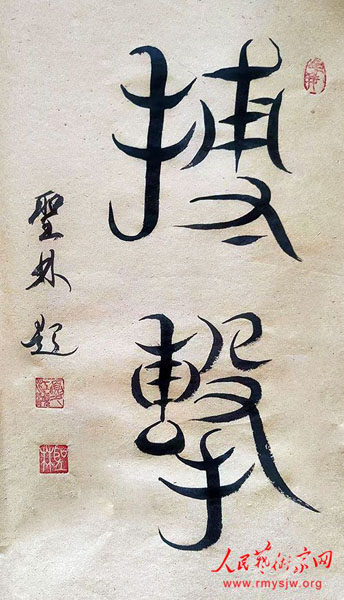 搏擊
聖林題
聖林
人民藝術家网
www.rmysjw.org